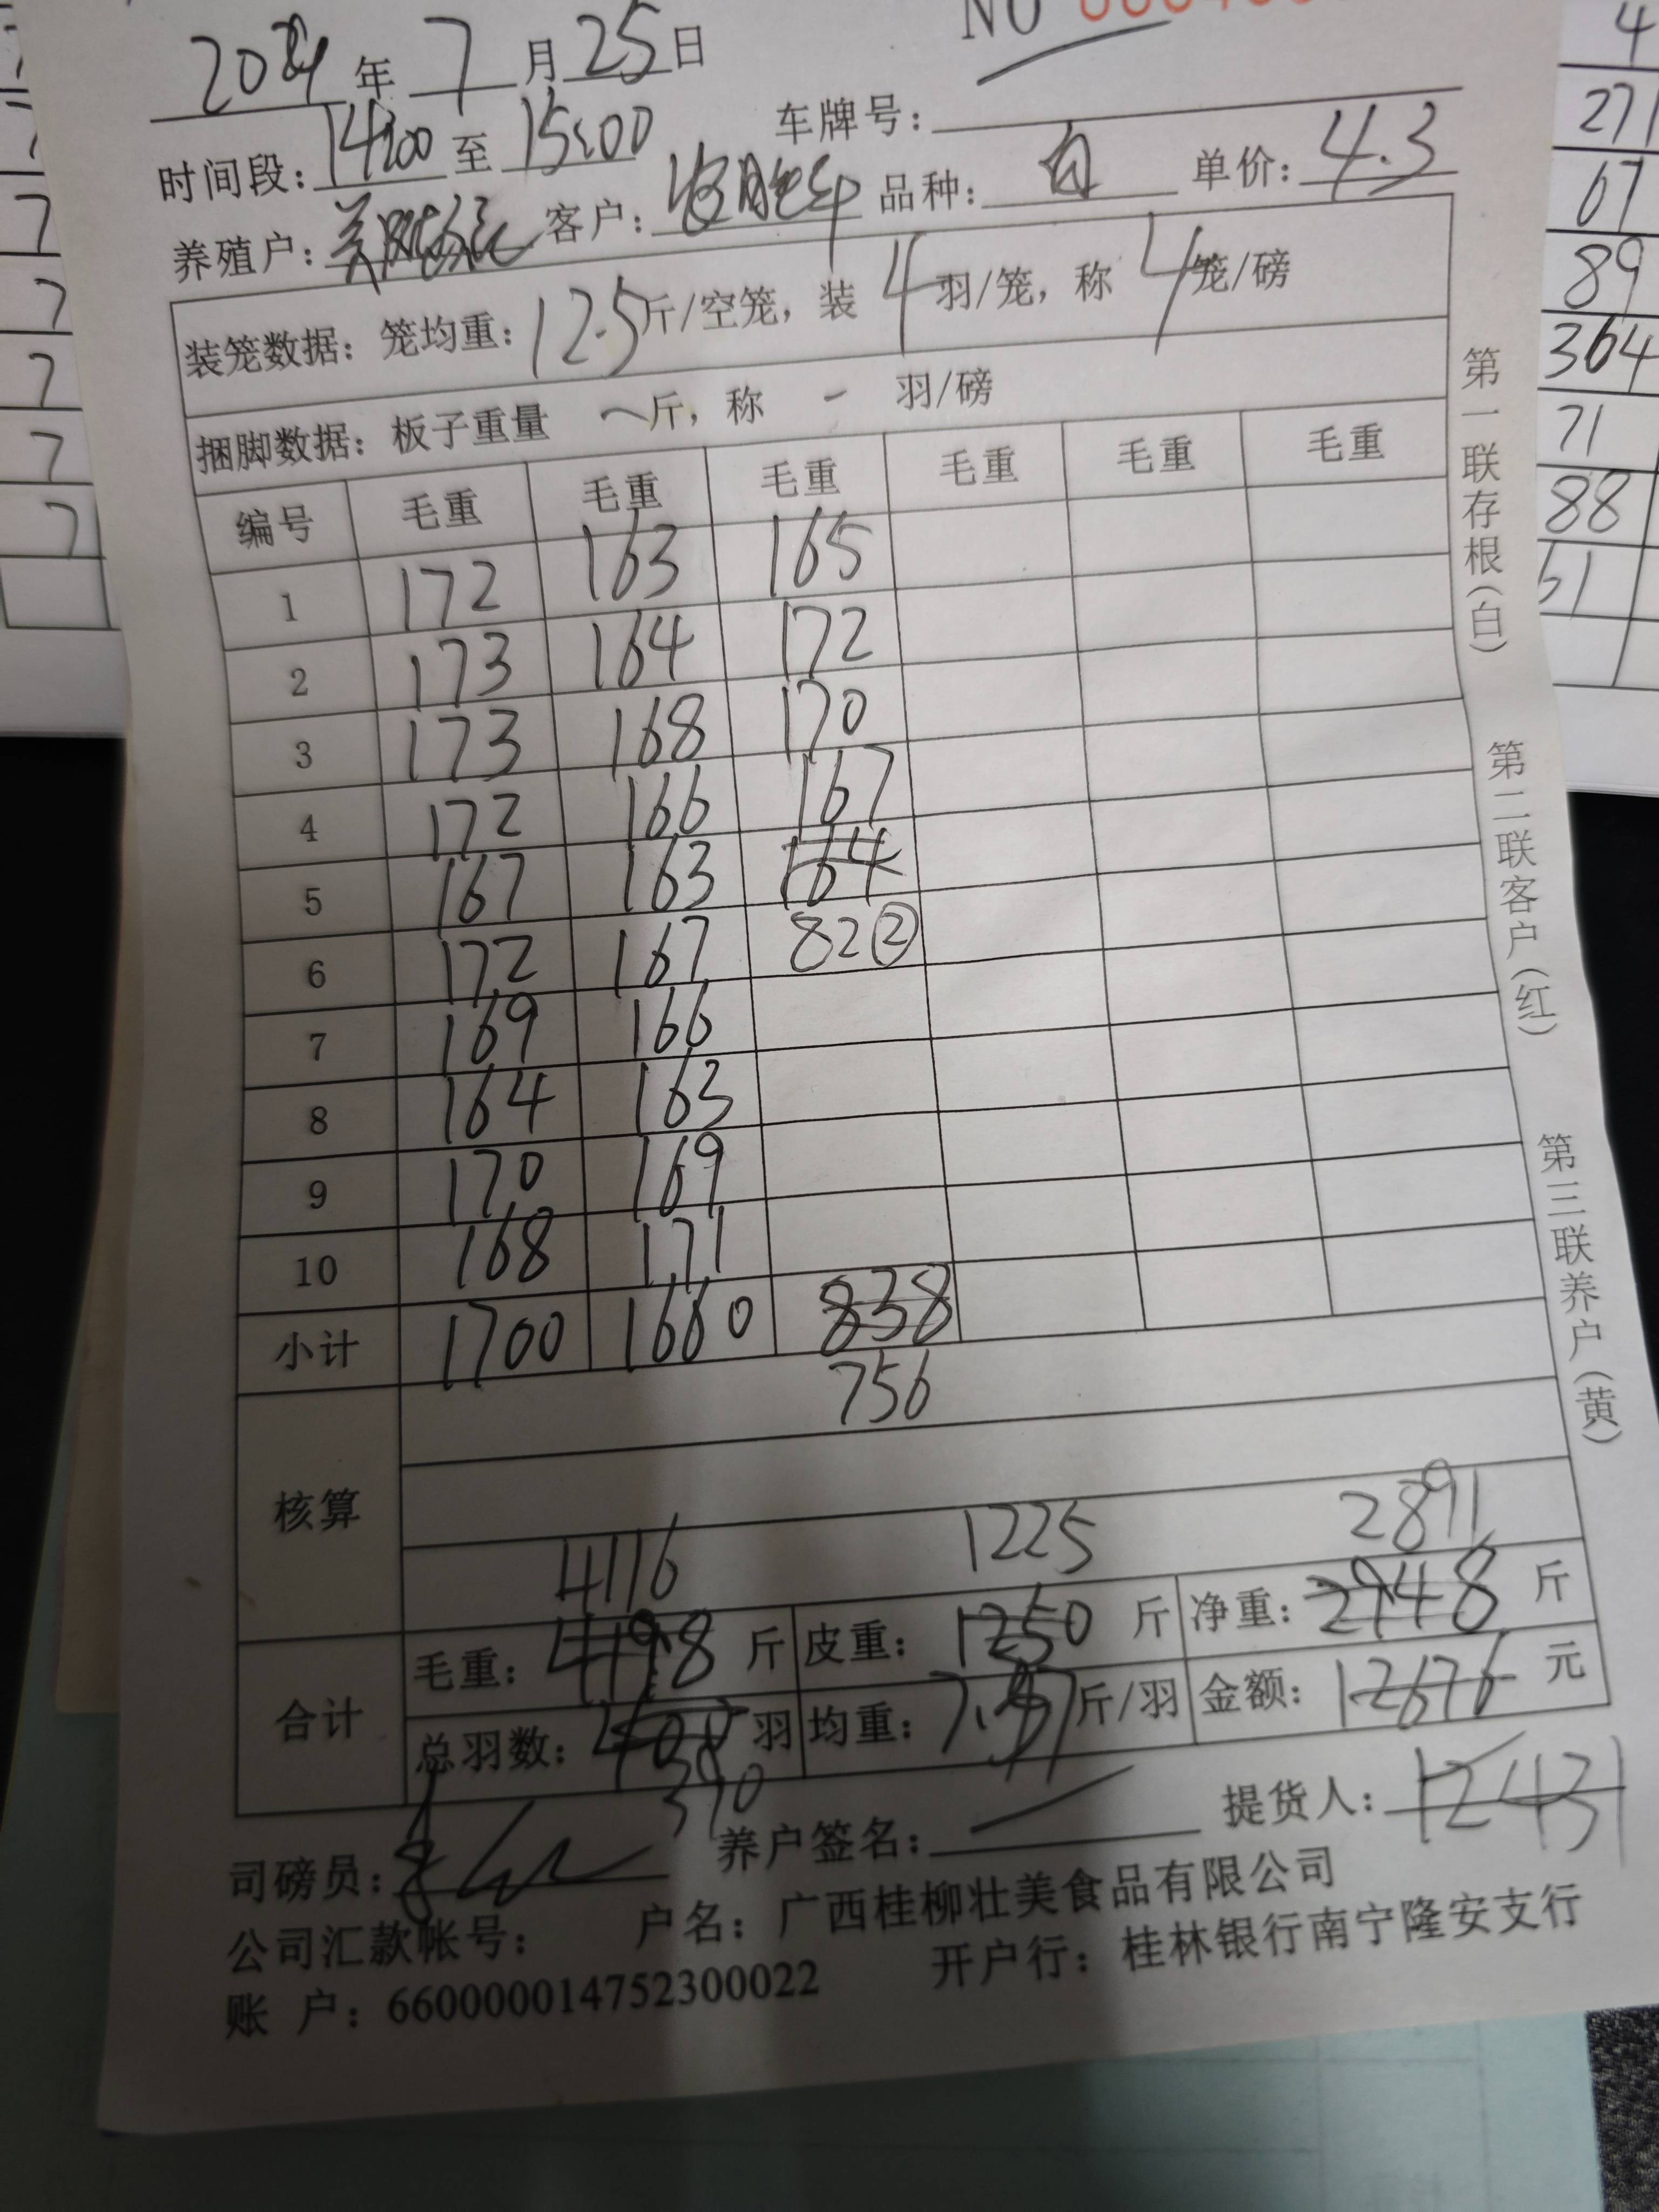 NO
2024年7月25日
时间段:14:00至15:00 车牌号:
养殖户: 客户: 品种:白 单价:4.3
装笼数据:笼均重:12.5斤/空笼,装4羽/笼,称4笼/磅
捆脚数据:板子重量 一斤,称 - 羽/磅
编号 毛重 毛重 毛重 毛重 毛重 毛重
1 172 163 165
2 173 164 172
3 173 168 170
4 172 166 167
5 167 163 164
6 172 167 82②
7 169 166
8 164 163
9 170 169
10 168 171
小计 1700 1660 838
756
核算
4116 1225 2891
合计 毛重:4198斤 皮重:1250斤 净重:2948斤
总羽数: 羽 均重: 斤/羽 金额:12676元
390
司磅员: 养户签名: 提货人:12431
公司汇款帐号: 户名:广西桂柳壮美食品有限公司
账 户:660000014752300022 开户行:桂林银行南宁隆安支行
第一联存根(白) 第二联客户(红) 第三联养户(黄)
7
7
7
7
7
4
271
67
89
364
71
88
61